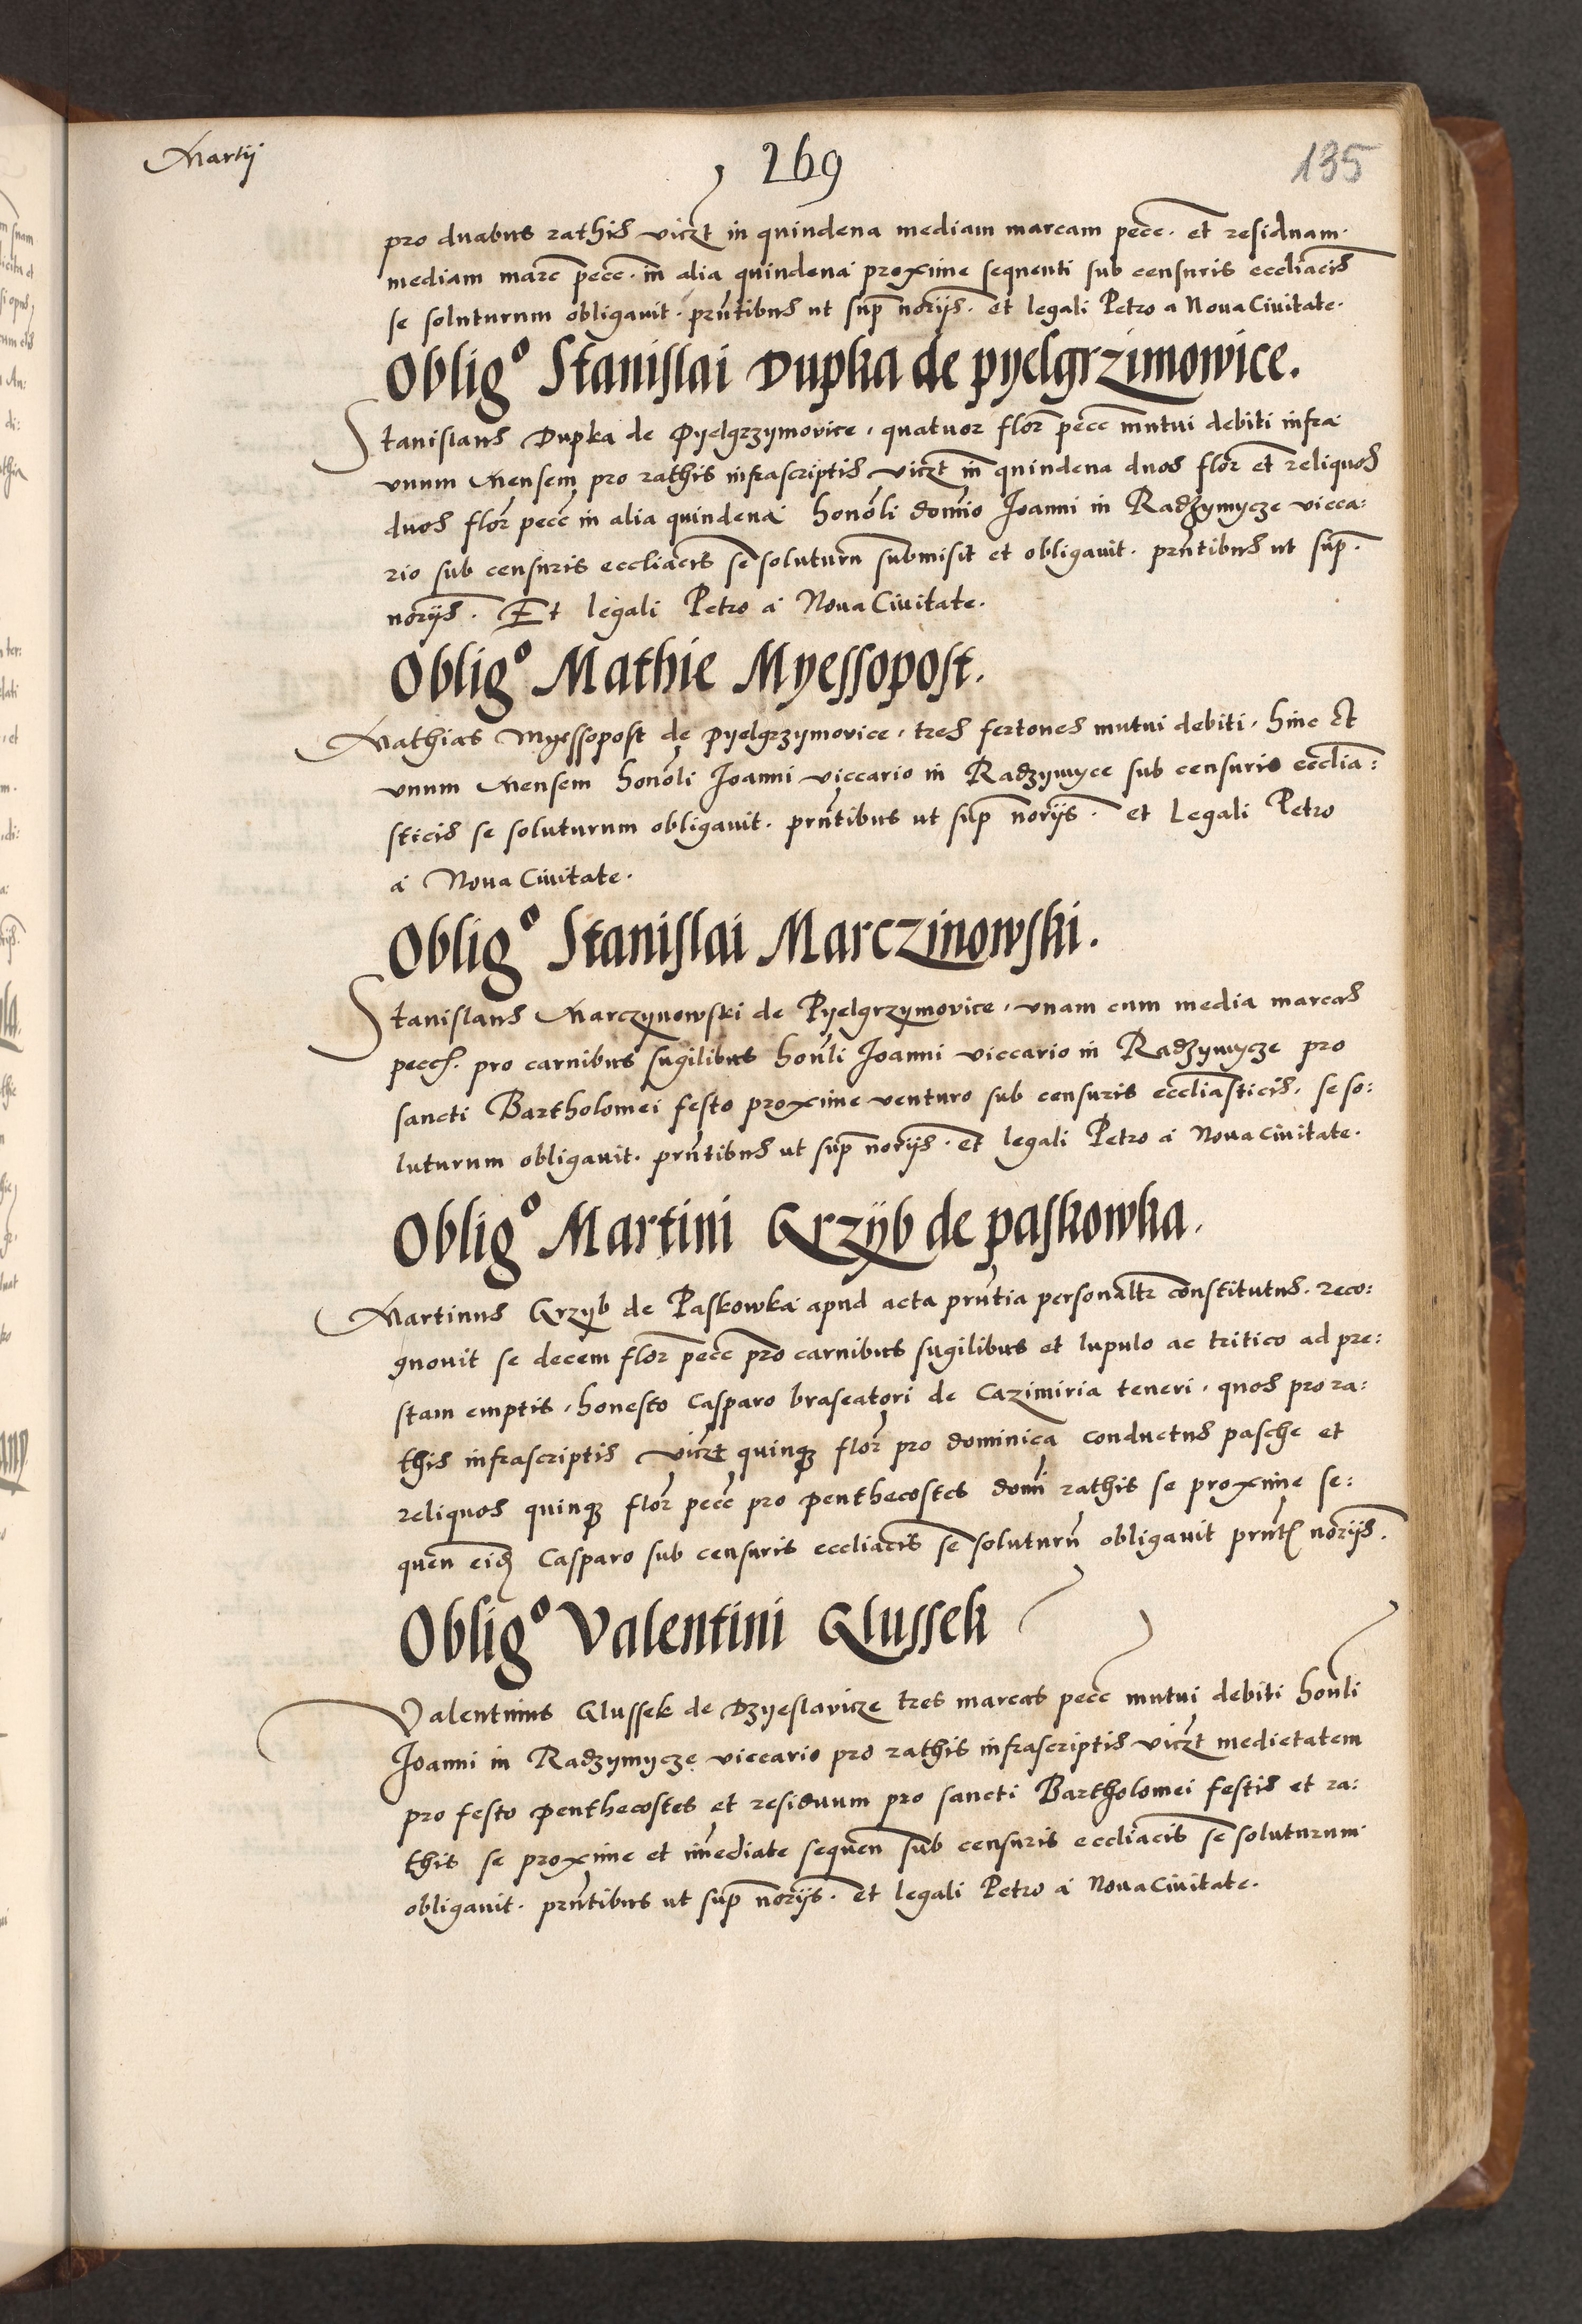 Martij
269
135
pro duabus rathis viczt in quindena mediam marcam pecc. et residuam
mediam marc pecc. in alia quindena proxime sequenti sub censuris eccliacis
se soluturum obligauit. prntibus ut sup norijs. et legali Petro a Noua Ciuitate.
Oblig° Stanislai Dupka de pyelgrzimowice.
Stanislaus Dupka de Pyelgrzymovice, quatuor flor pecc mutui debiti infra
vnum Mensem pro rathis infrascriptis viczt in quindena duos flor et reliquos
duos flor pecc in alia quindena honoli domio Joanni in Radzymycze vicca:
rio sub censuris eccliacis se soluturu submisit et obligauit. prntibus ut sup.
norijs. Et legali Petro a Noua Ciuitate.
Oblig° Mathie Myessopost.
Mathias Myessopost de Pyelgrzymovice, tres fertones mutui debiti. hinc et
vnum Mensem honoli Joanni viccario in Radzymyce sub censuris ecclia:
sticis se soluturum obligauit. prntibus ut sup norijs. et Legali Petro
a Noua Ciuitate.
Oblig° Stanislai Marczinowski.
Stanislaus Marczynowski de Pyelgrzymovice, vnam cum media marcas
pecc. pro carnibus sugilibus honli Joanni viccario in Radzymycze pro
sancti Bartholomei festo proxime venturo sub censuris eccliasticis, se so:
luturum obligauit. prntibus ut sup norijs. et legali Petro a Noua Ciuitate.
Oblig° Martini Grzÿb de paskowka.
Martinus Grzyb de Paskowka apud acta prntia personaltr constitutus. reco:
gnouit se decem flor pecc pro carnibus sugilibus et lupulo ac tritico ad pre:
stam emptis, honesto Casparo braseatori de Cazimiria teneri, quos pro ra:
this infrascriptis viczt quinq flor pro dominica conductus pasche et
reliquos quinq flor pecc pro Penthecostes domi rathis se proxime se:
quen eid Casparo sub censuris eccliacis se soluturu obligauit prnt norijs.
Oblig° Valentini Glussek
Valentinus Glussek de Dzyeslavicze tres marcas pecc mutui debiti honli
Joanni in Radzymycze viccario pro rathis infrascriptis viczt medietatem
pro festo Penthecostes et residuum pro sancti Bartholomei festis et ra:
this se proxime et imediate sequen sub censuris eccliacis se soluturum
obligauit. prntibus ut sup norijs. et legali Petro a Noua Ciuitate.